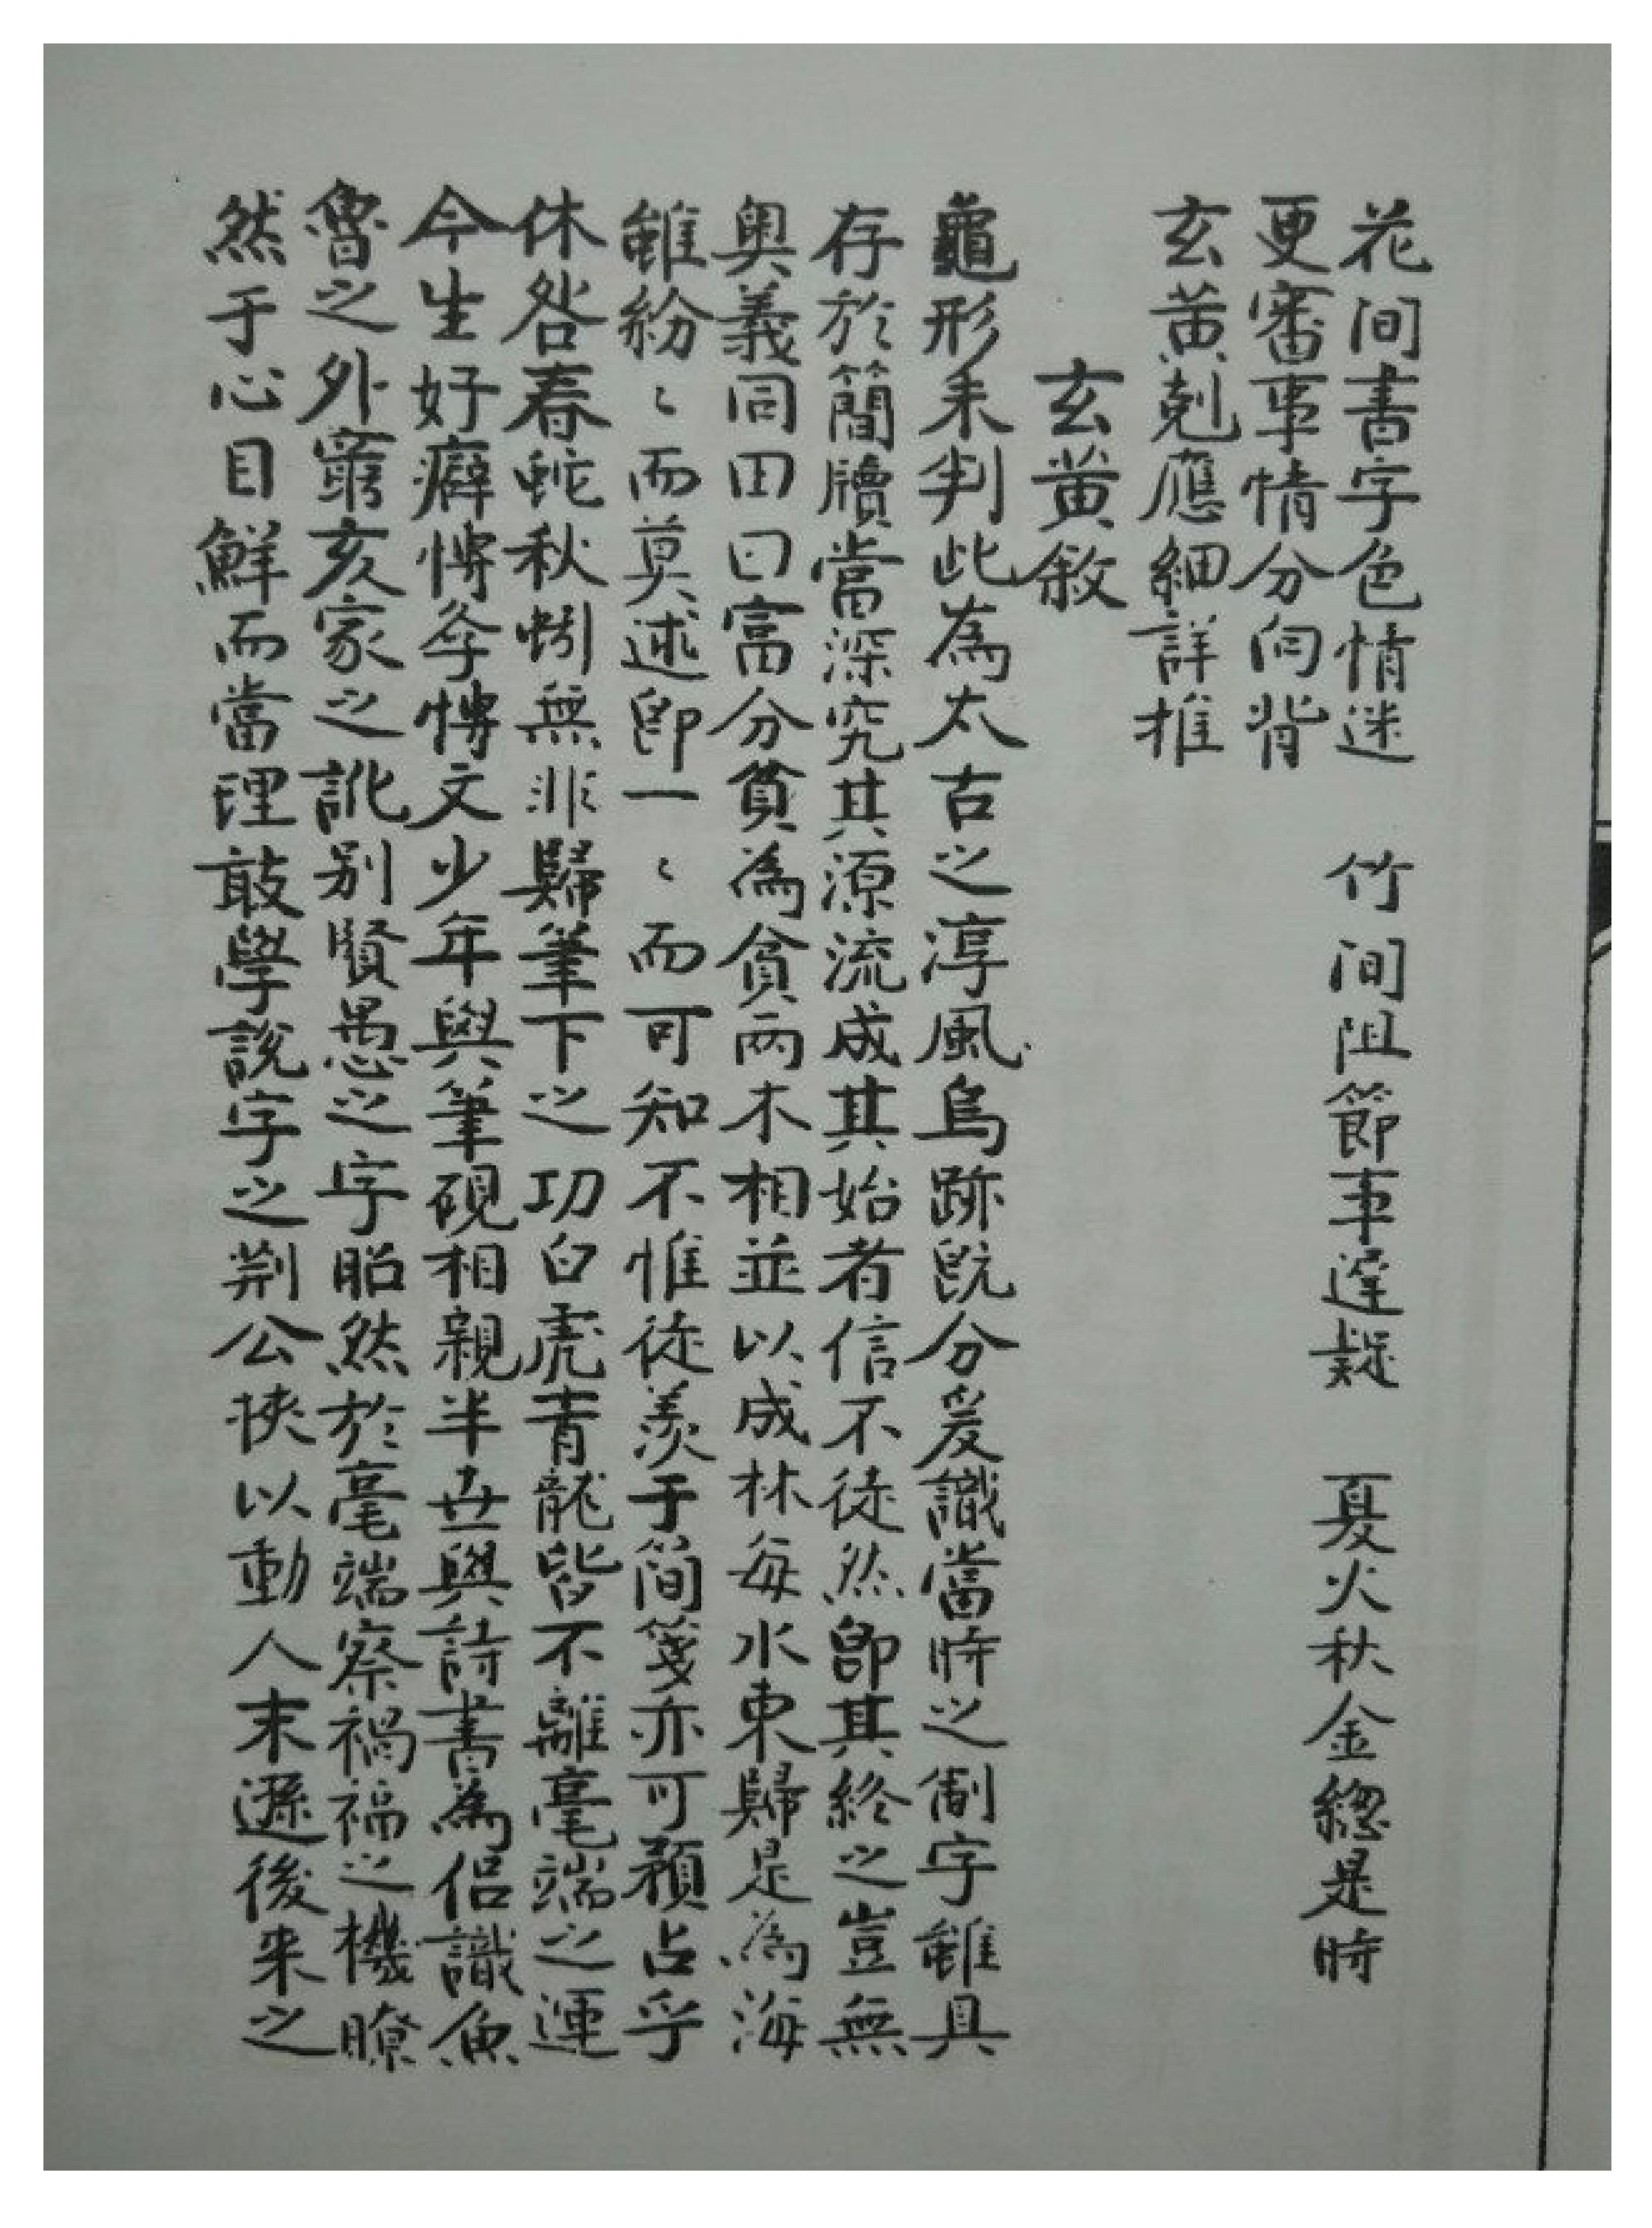 花間書字色情迷　竹間阻節事遲疑　夏火秋金總是時
更審事情分向背
玄黃剋應細詳推
玄黃敘
龜形未判此為太古之淳風鳥跡既分爰識當時之制字雖具
存於簡牘當深究其源流成其始者信不徒然即其終之豈無
奧義同田曰富分貝為貧兩木相並以成林每水東歸是為海
雖紛〻而莫述即一〻而可知不惟徒羨于簡箋亦可預占乎
休咎春蛇秋蚓無非歸筆下之功白虎青龍皆不離毫端之運
今生好癖博夲博文少年與筆硯相親半世與詩書為侶識魚
魯之外窮亥家之訛別賢愚之字昭然於毫端察禍福之機瞭
然于心目鮮而當理敢學說字之荆公挾以動人末遜後来之